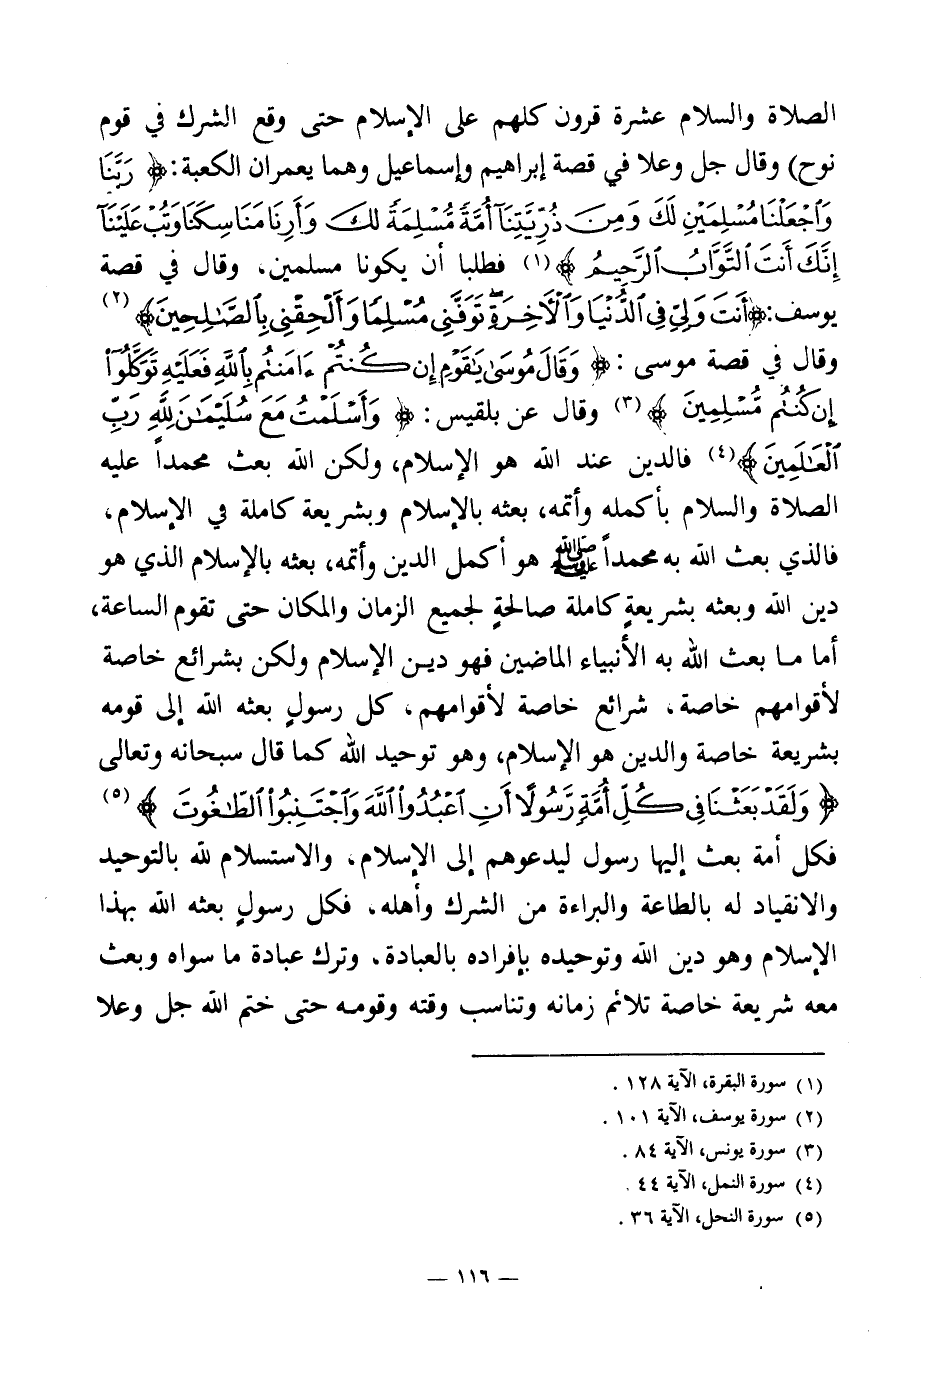 الصلاة والسلام عشرة قرون كلهم على الإسلام حتى وقع الشرك في قوم
نوح) وقال جل وعلا في قصة إبراهيم وإسماعيل وهما يعمران الكعبة: ﴿ رَبَّنَا
وَٱجْعَلْنَا مُسْلِمَيْنِ لَكَ وَمِن ذُرِّيَّتِنَآ أُمَّةً مُّسْلِمَةً لَّكَ وَأَرِنَا مَنَاسِكَنَا وَتُبْ عَلَيْنَآ
إِنَّكَ أَنتَ ٱلتَّوَّابُ ٱلرَّحِيمُ ﴾(١) فطلبا أن يكونا مسلمين، وقال في قصة
يوسف: ﴿أَنتَ وَلِىِّۦ فِى ٱلدُّنْيَا وَٱلْءَاخِرَةِ تَوَفَّنِى مُسْلِمًا وَأَلْحِقْنِى بِٱلصَّـٰلِحِينَ﴾(٢)
وقال في قصة موسى : ﴿ وَقَالَ مُوسَىٰ يَـٰقَوْمِ إِن كُنتُمْ ءَامَنتُم بِٱللَّهِ فَعَلَيْهِ تَوَكَّلُوٓا۟
إِن كُنتُم مُّسْلِمِينَ ﴾(٣) وقال عن بلقيس: ﴿ وَأَسْلَمْتُ مَعَ سُلَيْمَـٰنَ لِلَّهِ رَبِّ
ٱلْعَـٰلَمِينَ ﴾(٤) فالدين عند الله هو الإسلام، ولكن الله بعث محمداً عليه
الصلاة والسلام بأكمله وأتمه، بعثه بالإسلام وبشريعة كاملة في الإسلام،
فالذي بعث الله به محمداً ﷺ هو أكمل الدين وأتمه، بعثه بالإسلام الذي هو
دين الله وبعثه بشريعةٍ كاملة صالحةٍ لجميع الزمان والمكان حتى تقوم الساعة،
أما ما بعث الله به الأنبياء الماضين فهو دين الإسلام ولكن بشرائع خاصة
لأقوامهم خاصة، شرائع خاصة لأقوامهم، كل رسولٍ بعثه الله إلى قومه
بشريعة خاصة والدين هو الإسلام، وهو توحيد الله كما قال سبحانه وتعالى
﴿ وَلَقَدْ بَعَثْنَا فِى كُلِّ أُمَّةٍ رَّسُولًا أَنِ ٱعْبُدُوا۟ ٱللَّهَ وَٱجْتَنِبُوا۟ ٱلطَّـٰغُوتَ ﴾(٥)
فكل أمة بعث إليها رسول ليدعوهم إلى الإسلام، والاستسلام لله بالتوحيد
والانقياد له بالطاعة والبراءة من الشرك وأهله، فكل رسولٍ بعثه الله بهذا
الإسلام وهو دين الله وتوحيده بإفراده بالعبادة، وترك عبادة ما سواه وبعث
معه شريعة خاصة تلائم زمانه وتناسب وقته وقومه حتى ختم الله جل وعلا
(١) سورة البقرة، الآية ١٢٨ .
(٢) سورة يوسف، الآية ١٠١ .
(٣) سورة يونس، الآية ٨٤ .
(٤) سورة النمل، الآية ٤٤ .
(٥) سورة النحل، الآية ٣٦ .
— ١١٦ —